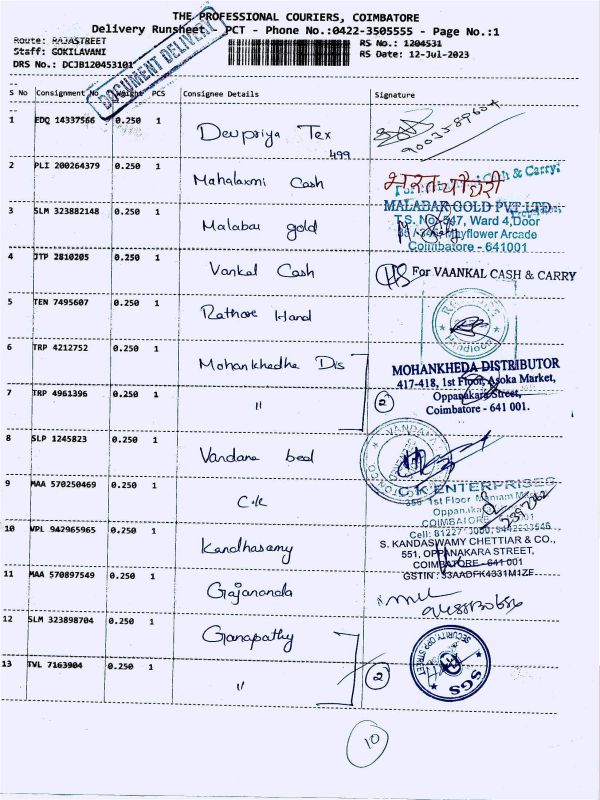 THE PROFESSIONAL COURIERS, COIMBATORE
Delivery Runsheet PCT - Phone No.:0422-3505555 - Page No.:1
Route: RAJASTREET
RS No.: 1204531
Staff: GOKILAVANI
RS Date: 12-Jul-2023
DRS No.: DCJB120453101
DOCUMENT DELIVERY
S No Consignment No Weight PCS Consignee Details Signature
1 EDQ 14337566 0.250 1 Devpriya Tex
499
2 PLI 200264379 0.250 1 Mahalaxmi Cash
भरत चौधरी
Cash & Carry
3 SLM 323882148 0.250 1 Malabar gold
MALABAR GOLD PVT LTD
T.S. No. 547, Ward 4, Door
Mayflower Arcade
Coimbatore - 641001
4 JTP 2810205 0.250 1 Vankal Cash
For VAANKAL CASH & CARRY
5 TEN 7495607 0.250 1 Rathore Hand
6 TRP 4212752 0.250 1 Mohankhedha Dis
MOHANKHEDA DISTRIBUTOR
417-418, 1st Floor, Asoka Market,
Oppanakara Street,
Coimbatore - 641 001.
7 TRP 4961396 0.250 1 "
2
8 SLP 1245823 0.250 1 Vandana bed
VANDANA
9 MAA 570250469 0.250 1 C.K
C K ENTERPRISES
1st Floor
COIMBATORE
10 VPL 942965965 0.250 1 Kandhasamy
S. KANDASWAMY CHETTIAR & CO.,
551, OPPANAKARA STREET,
COIMBATORE - 641 001
GSTIN : 33AADFK4331M1ZE
11 MAA 570897549 0.250 1 Gajananda
12 SLM 323898704 0.250 1 Ganapathy
13 TVL 7163904 0.250 1 "
2
SGS
10